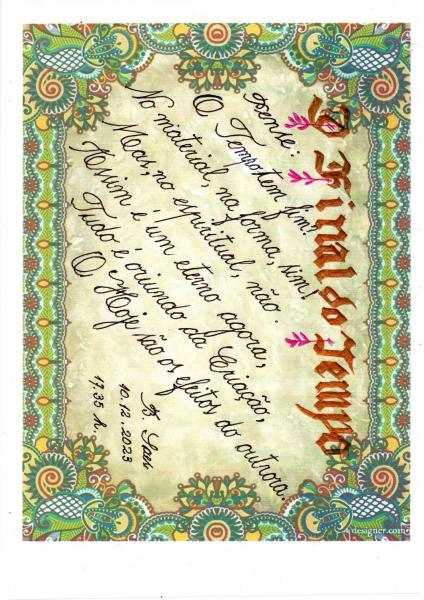 O Final do Tempo
Pense:
O Tempo tem fim!
No material, na forma, sim!
Mas, no espiritual, não.
Assim é um eterno agora,
Tudo é oriundo da Criação,
O Hoje são os efeitos do outrora.
10.12.2023
19,35 h.
4designer.com